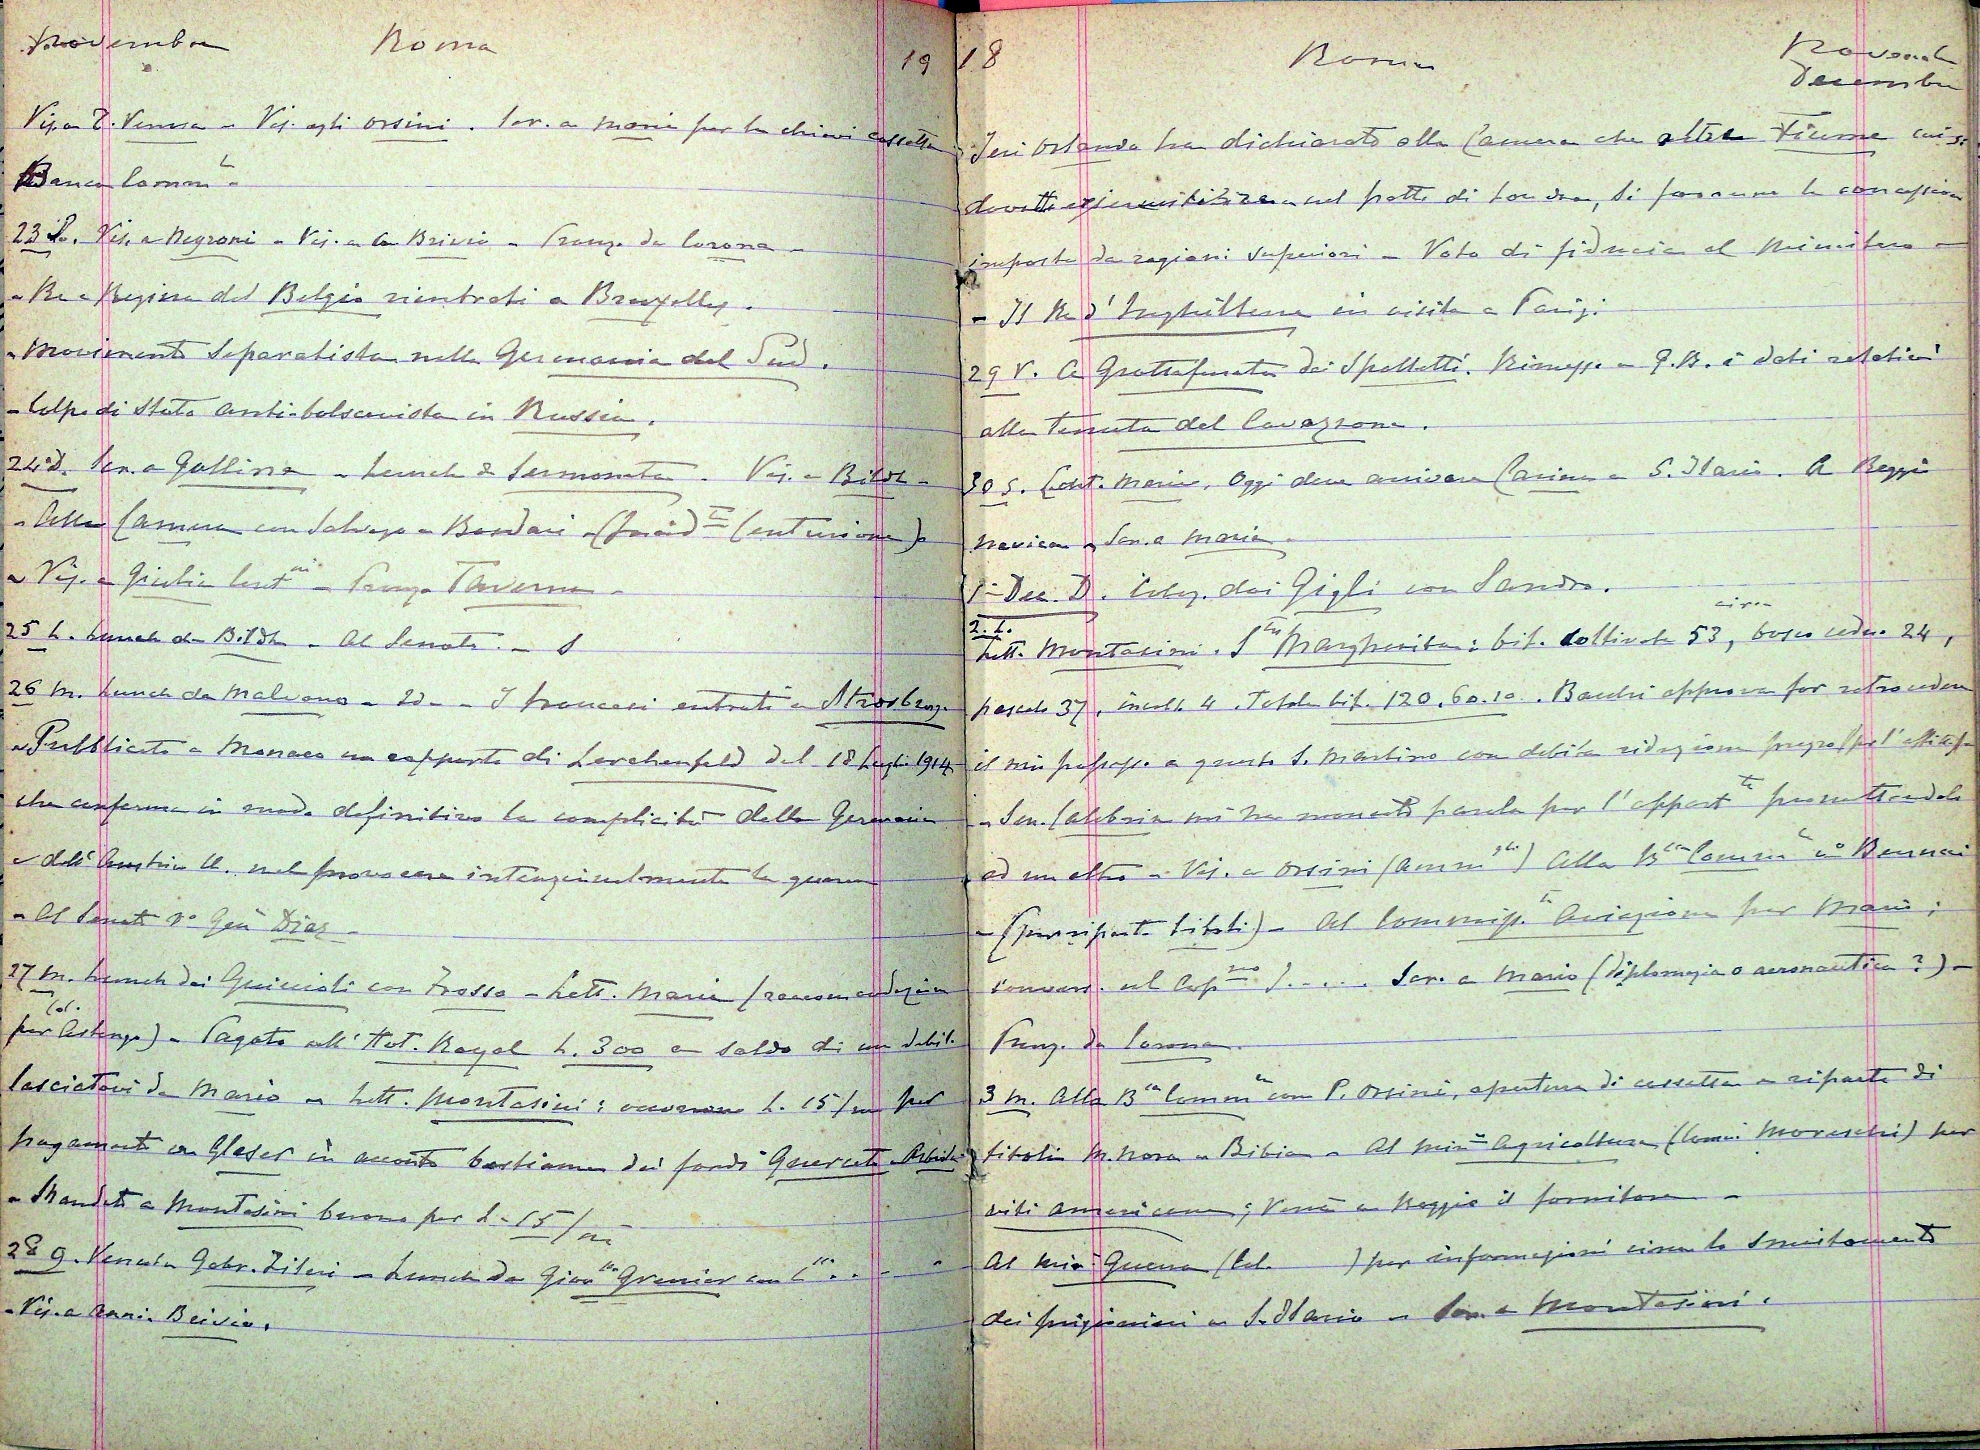 Novembre Roma 19
Vis. a T. Venosa - Vis. agli Orsini. Scr. a Mario per le chiavi cassetta
Banca Comm.le
23 S. Vis. a Negroni - Vis. a Ca Brivio - Pranz. da Corona -
- Re e Regina del Belgio rientrati a Bruxelles.
- Movimento Separatista nella Germania del Sud.
- Colpo di Stato antibolscevista in Russia.
24 D. Scr. a Gallina - Lunch a Sermoneta. Vis. a Bildt -
- Alla Camera con Salvago e Bordari -
- Vis. a Giulia - Pranzo Taverna -
25 L. Lunch da Bildt - Al Senato. -
26 M. Lunch da Malvano - Id - I francesi entrati a Strasburgo
- Pubblicato a Monaco un rapporto di Lerchenfeld del 18 Luglio 1914
che conferma in modo definitivo la complicità della Germania
e dell'Austria U. nel provocare intenzionalmente la guerra
- Al Senato Diaz -
27 M. Lunch dai Guiccioli con Frasso - Lett. Mario (raccomandazione
per Col. Astengo) - Pagato all'Hot. Royal L. 300 a saldo di un debito
lasciatovi da Mario - Lett. Montasini: occorrono L. 15/m per
pagamento a Glaser in acconto bestiame dei fondi Querceto
- Mandato a Montasini buono per L. 15/m -
28 G. Venuta Gabr. Zileri - Lunch da Giov.na Grenier con
- Vis. a Brivio.
18 Roma Novembre
Decembre
Ieri Orlando ha dichiarato alla Camera che oltre Fiume cui si
dovette nel patto di Londra, si faranno le concessioni
imposte da ragioni superiori - Voto di fiducia al Ministero -
- Il Re d'Inghilterra in visita a Parigi
29 V. A Grottaferrata dai Spalletti. Rimesso a G.B. i dati relativi
alla tenuta del Cavazzone.
30 S. Lett. Mario. Oggi deve arrivare Carina a S. Ilario. A Reggio
nevica - Scr. a Mario -
1º Dec. D. Colaz. dai Gigli con Sandro.
2. L.
Lett. Montasini. S.ta Margherita: bif. coltivate 53, bosco ceduo circa 24,
pascolo 37, incolto 4. Totale bif. 120.60.10. Bacchi approva per retrocedere
il mio passaggio a questo S. Martino con debita riduzione prezzo per l'affitto
- Sen. Calabria mi ha mancato parola per l'appart.to promettendolo
ad un altro - Vis. a Orsini - Alla B.ca Comm.le
- (per riparto titoli) - Al Commiss. Aviazione per Mario;
convers. col Cap.no J..... Scr. a Mario (diplomazia o aeronautica?) -
Pranz. da Corona.
3 M. Alla B.ca Comm. con P. Orsini, apertura di cassetta e riparto di
titoli M. Nora e Bibia - Al Min. Agricoltura (Comm. Moreschi) per
viti americane; Verrà a Reggio il fornitore -
Al Min. Guerra (Col. ) per informazioni circa lo smistamento
dei prigionieri a S. Ilario - Scr. a Montasini.